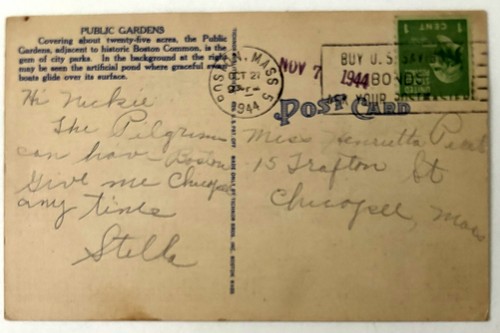 PUBLIC GARDENS
Covering about twenty-five acres, the Public
Gardens, adjacent to historic Boston Common, is the
gem of city parks. In the background at the right
may be seen the artificial pond where graceful swan
boats glide over its surface.
Hi Nickie
The Pilgrims
can have Boston
Give me Chicopee
any times
Stella
BOSTON, MASS 5
OCT 27
1944
NOV 7 1944
BUY U.S. SAVINGS
BONDS
ASK YOUR POSTMASTER
1 CENT 1
POST CARD
Miss Henrietta
15 Grafton St
Chicopee, Mass